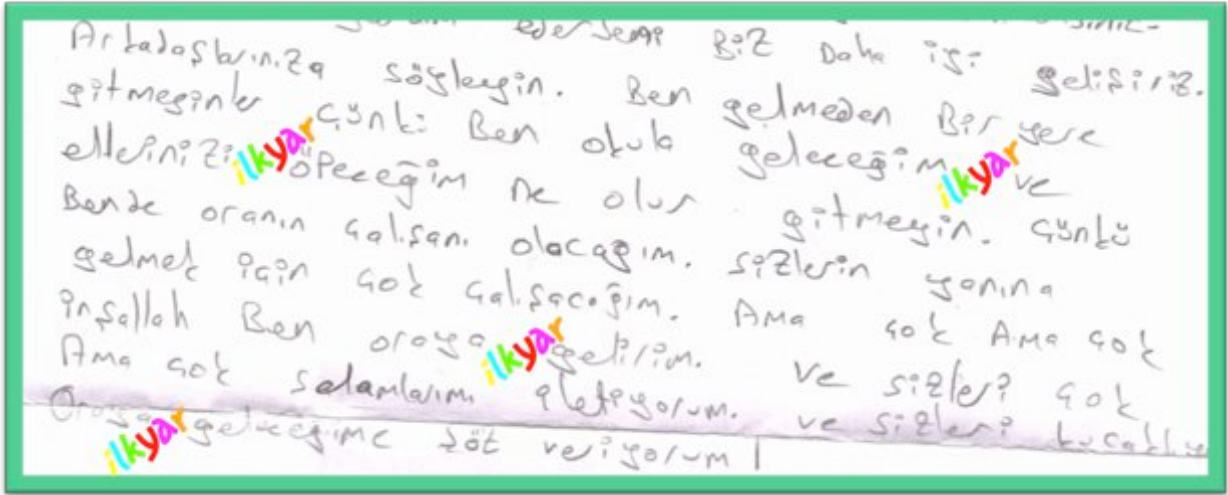 ederseniz BİZ Daha iyi gelişiriz.
Arkadaşlarınıza söyleyin. Ben gelmeden Bir yere
gitmeyinler çünki Ben okula geleceğim ve
ellerinizi öpeceğim ne olur gitmeyin. çünkü
Bende oranın çalışanı olacağım. sizlerin yanına
gelmek için çok çalışacağım. Ama çok Ama çok
inşallah Ben oraya gelirim. ve sizleri çok
Ama çok selamlarımı iletiyorum. ve sizleri
Oraya geleceğime söz veriyorum
ilkyar
ilkyar
ilkyar
ilkyar